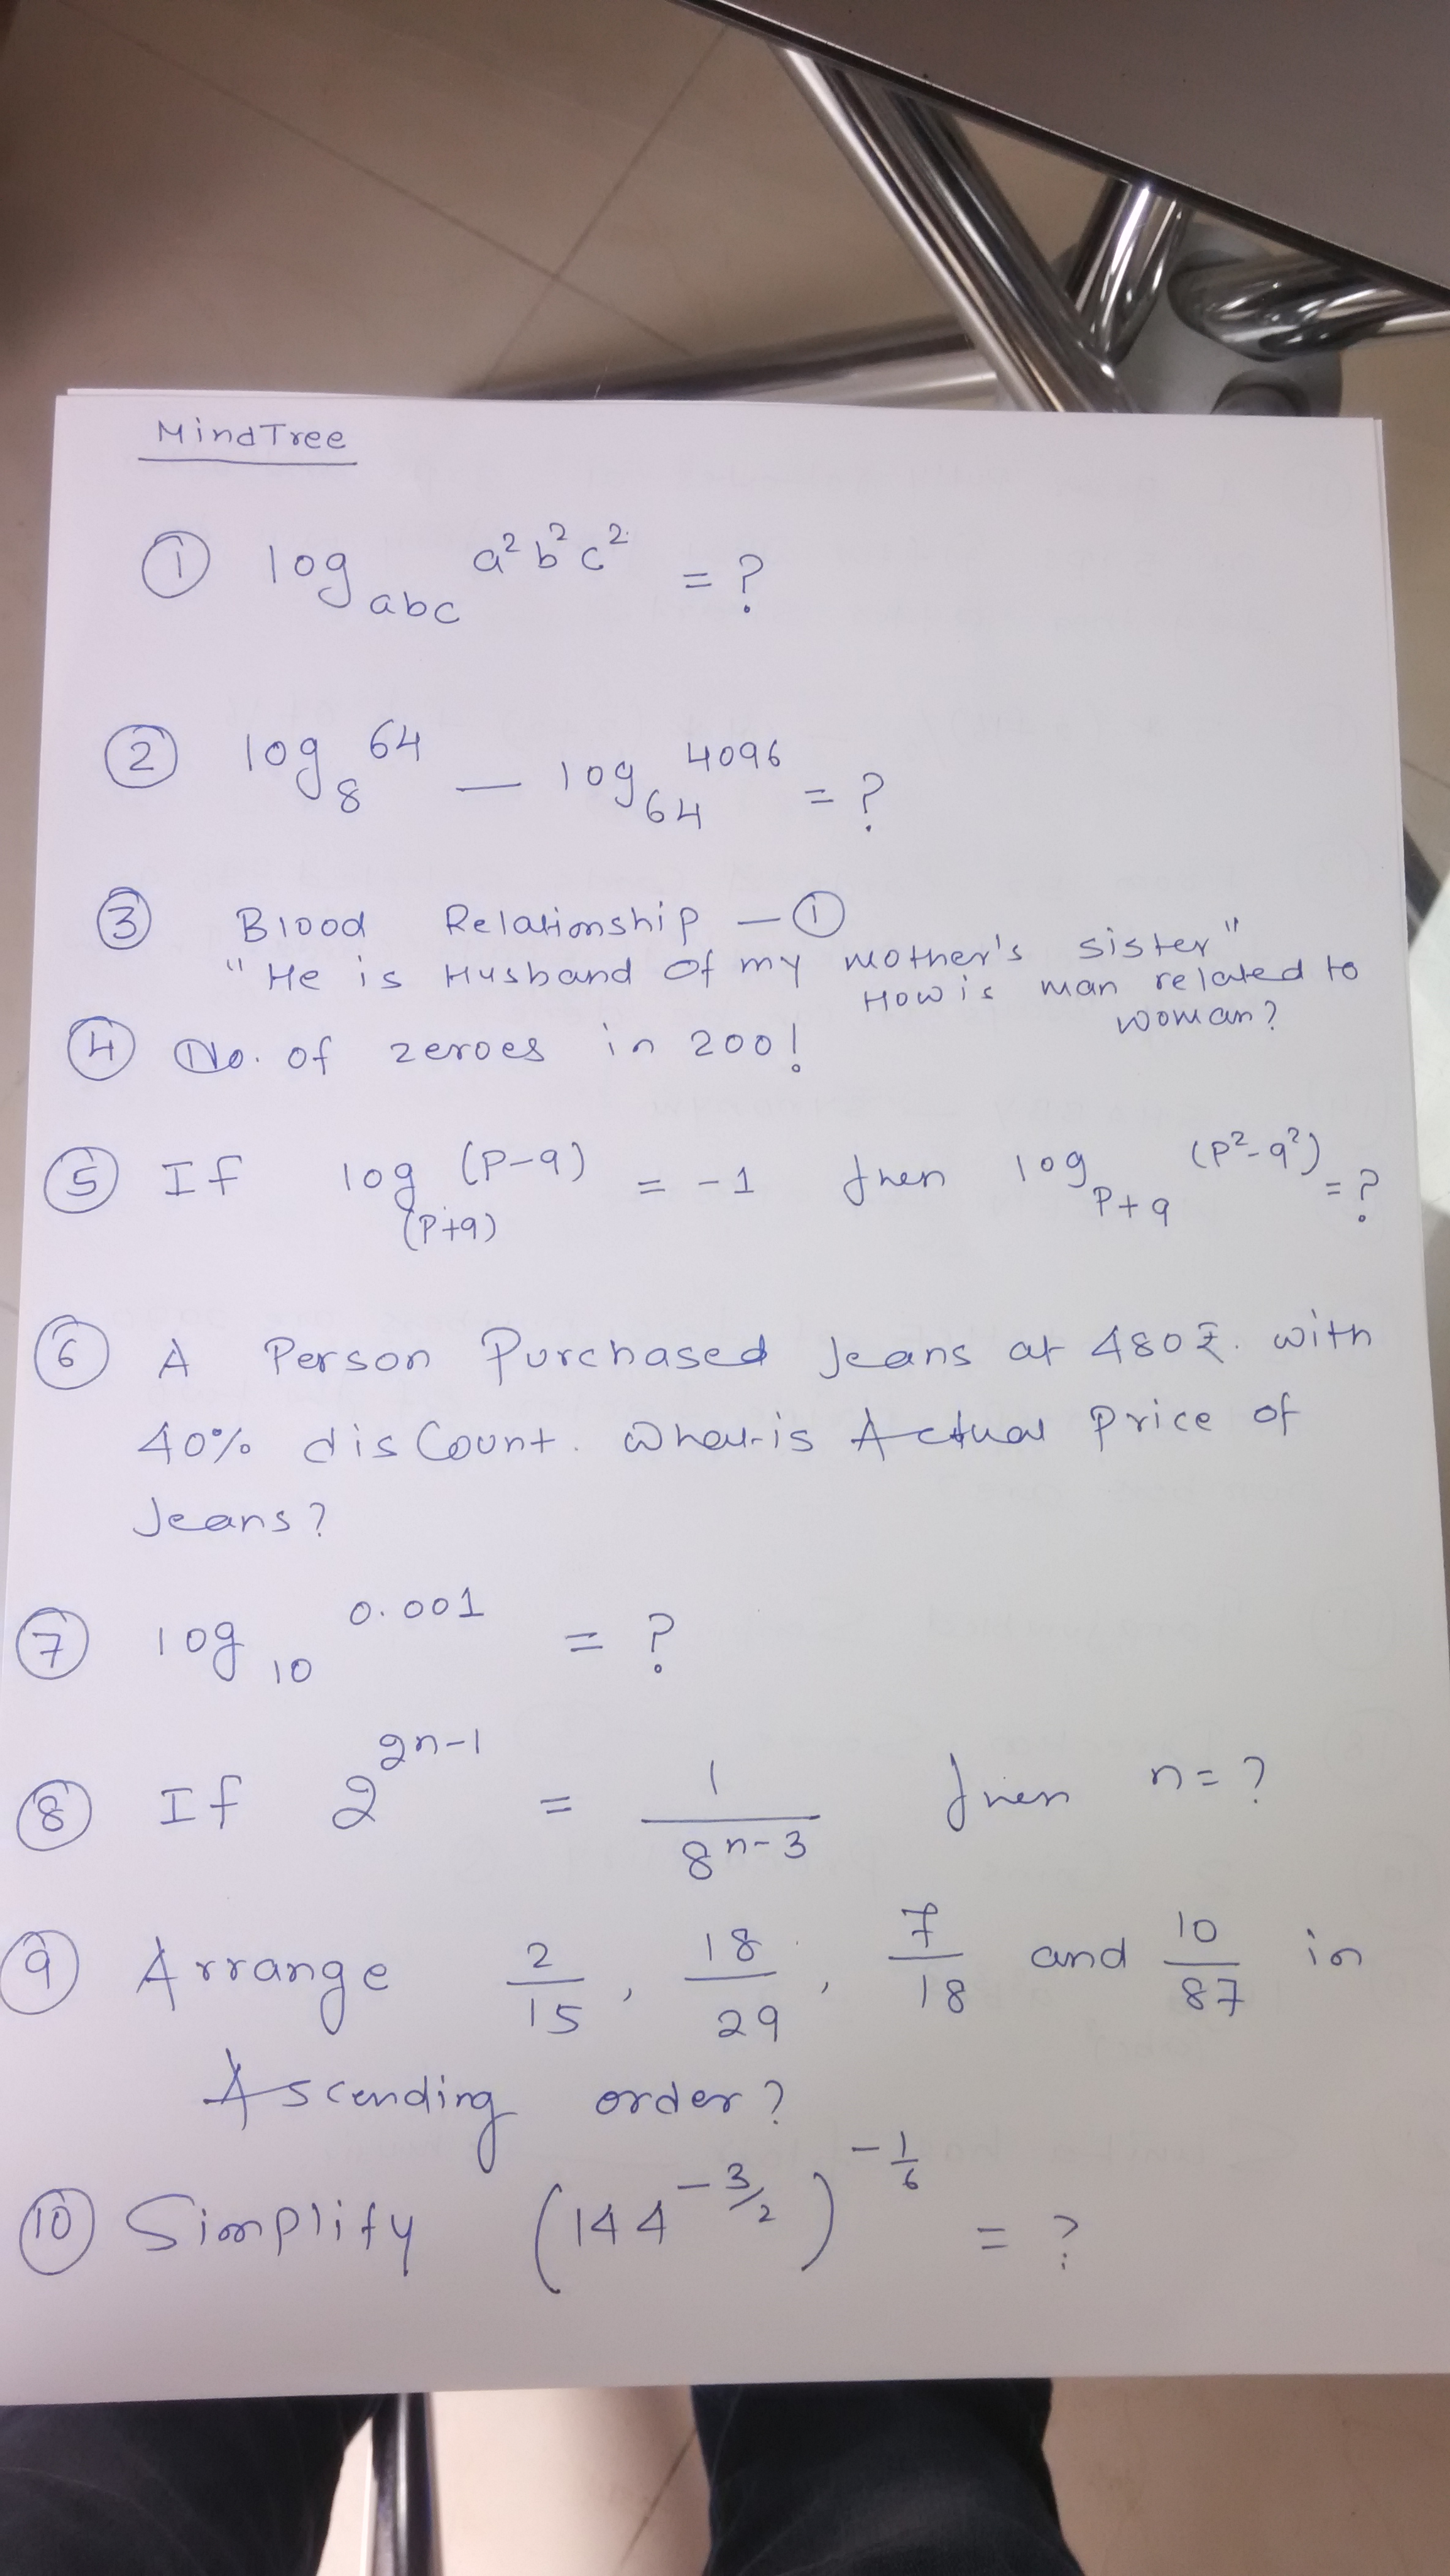 MindTree
① log abc a²b²c² = ?
② log 8 64 — log 64 4096 = ?
③ Blood Relationship — ①
"He is Husband of my mother's sister"
How is man related to woman?
④ No. of zeroes in 200!
⑤ If log (P+q) (P-q) = -1 then log P+q (P²-q²) = ?
⑥ A Person Purchased Jeans at 480₹. with
40% disCount. What is Actual Price of
Jeans?
⑦ log 10 0.001 = ?
⑧ If 2^(2n-1) = 1/8^(n-3) then n = ?
⑨ Arrange 2/15, 18/29, 7/18 and 10/87 in
Ascending order?
⑩ Simplify (144^(-3/2))^(-1/6) = ?